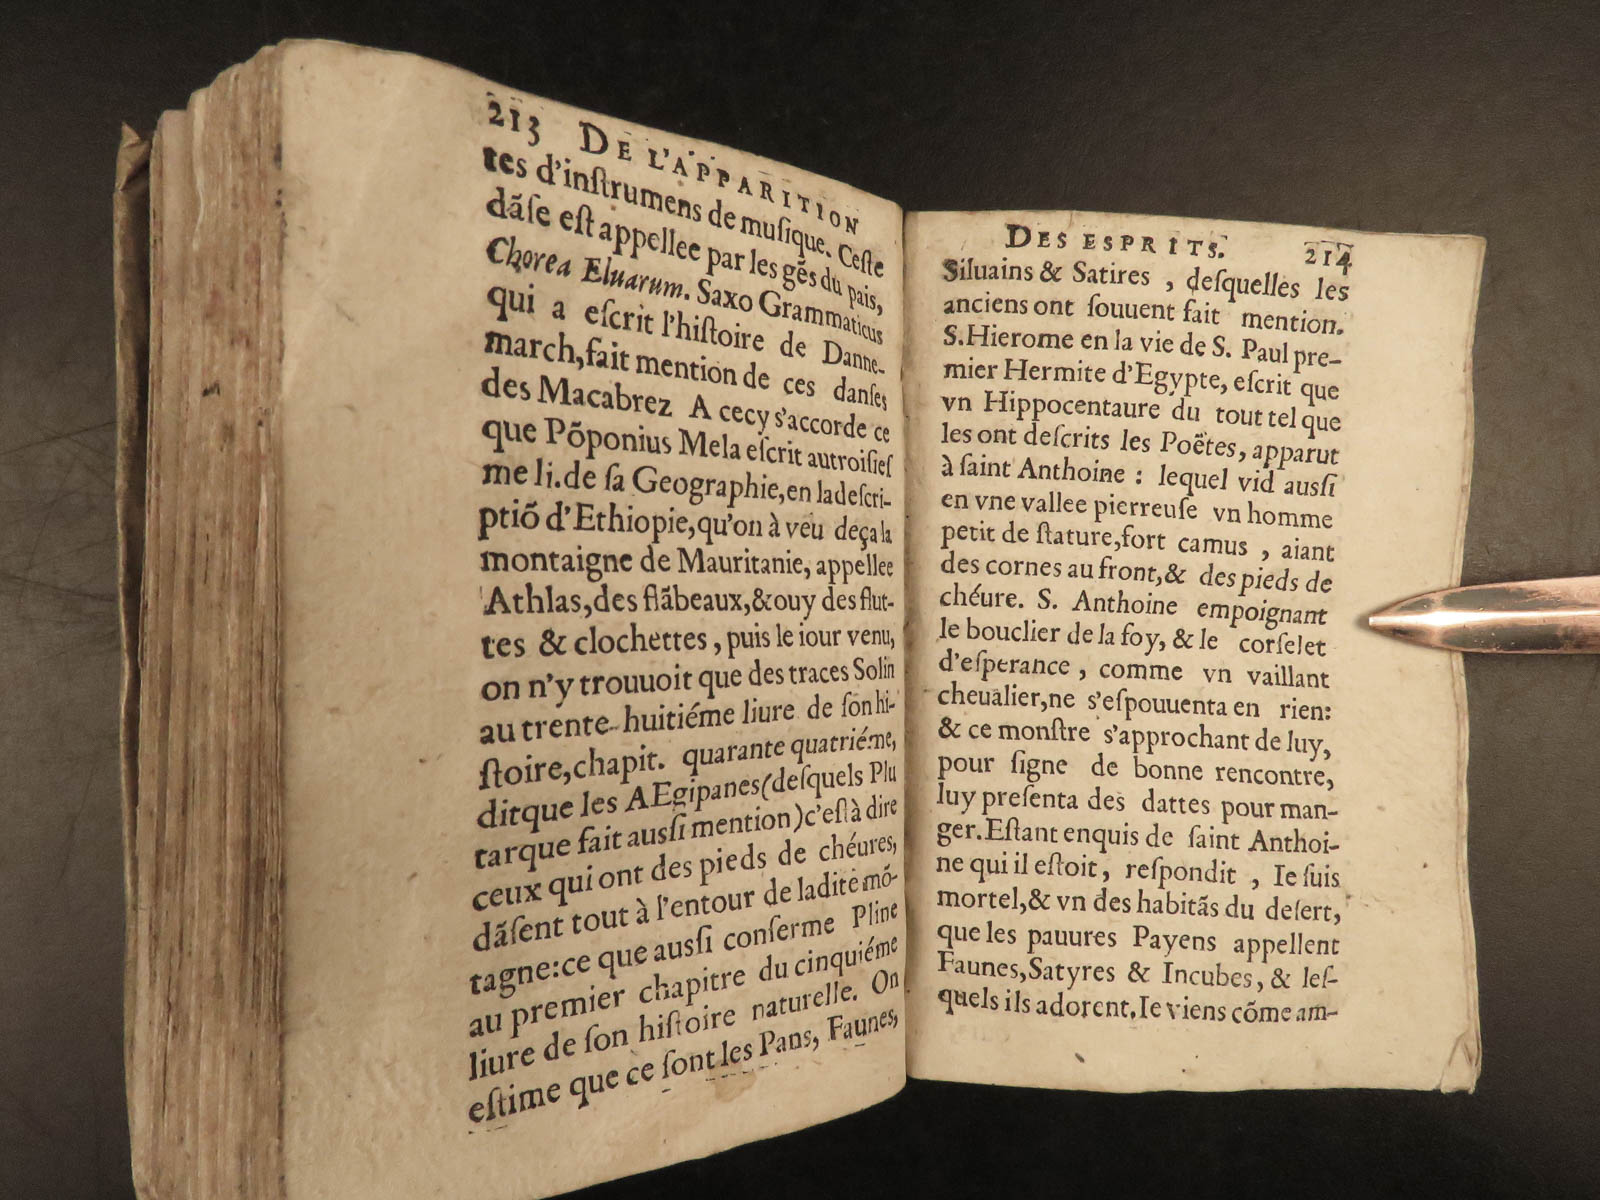 213 DE L'APPARITION
tes d'inſtrumens de muſique. Ceſte
dãſe eſt appellee par les gẽs du pais,
Chorea Eluarum. Saxo Grammaticus
qui a eſcrit l'hiſtoire de Danne-
march, fait mention de ces danſes
des Macabrez A cecy s'accorde ce
que Põponius Mela eſcrit autroiſieſ
me li. de ſa Geographie, en ladeſcri-
ptiõ d'Ethiopie, qu'on à veu deça la
montaigne de Mauritanie, appellee
Athlas, des flãbeaux, & ouy des flut-
tes & clochettes, puis le iour venu,
on n'y trouuoit que des traces Solin
au trente-huitiéme liure de ſon hi-
ſtoire, chapit. quarante quatriéme,
ditque les AEgipanes (deſquels Plu
tarque fait auſſi mention) c'eſt à dire
ceux qui ont des pieds de chéures,
dãſent tout à l'entour de ladite mõ-
tagne: ce que auſſi conferme Pline
au premier chapitre du cinquiéme
liure de ſon hiſtoire naturelle. On
eſtime que ce ſont les Pans, Faunes,
DES ESPRITS. 214
Siluains & Satires, deſquelles les
anciens ont ſouuent fait mention.
S. Hierome en la vie de S. Paul pre-
mier Hermite d'Egypte, eſcrit que
vn Hippocentaure du tout tel que
les ont deſcrits les Poëtes, apparut
à ſaint Anthoine : lequel vid auſſi
en vne vallee pierreuſe vn homme
petit de ſtature, fort camus, aiant
des cornes au front, & des pieds de
chéure. S. Anthoine empoignant
le bouclier de la foy, & le corſelet
d'eſperance, comme vn vaillant
cheualier, ne s'eſpouuenta en rien:
& ce monſtre s'approchant de luy,
pour ſigne de bonne rencontre,
luy preſenta des dattes pour man-
ger. Eſtant enquis de ſaint Anthoi-
ne qui il eſtoit, reſpondit, Ie ſuis
mortel, & vn des habitãs du deſert,
que les pauures Payens appellent
Faunes, Satyres & Incubes, & leſ-
quels ils adorent. Ie viens cõme am-